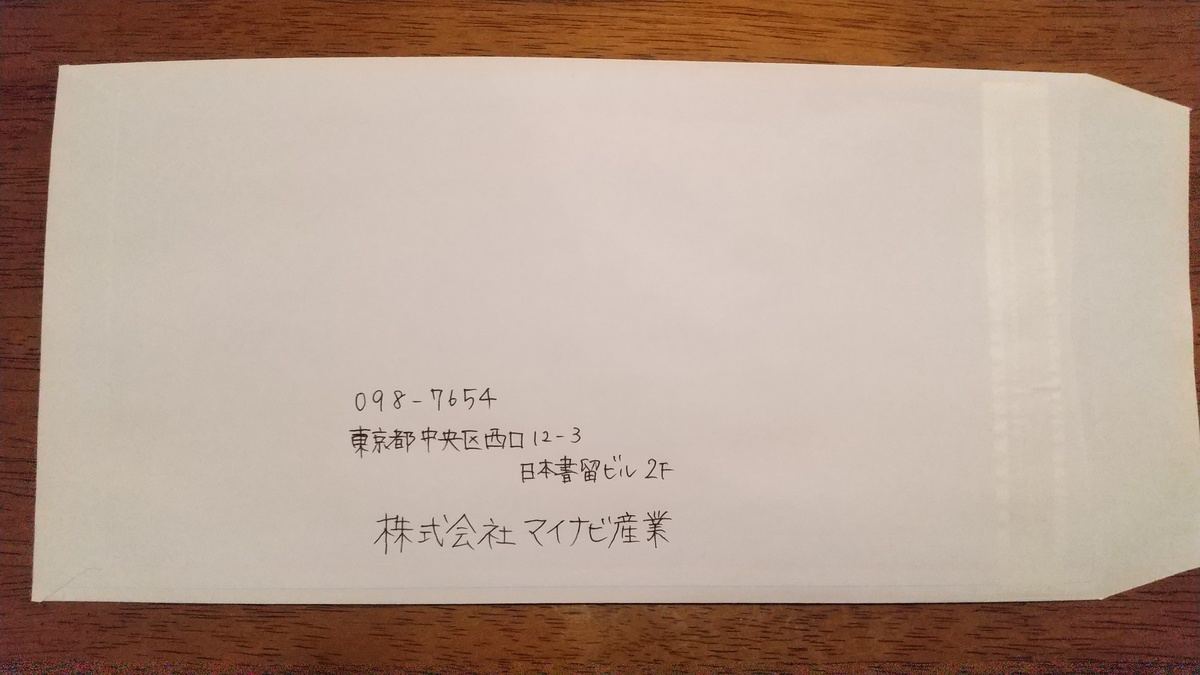 098-7654
東京都中央区西口12-3
日本書留ビル 2F
株式会社マイナビ産業